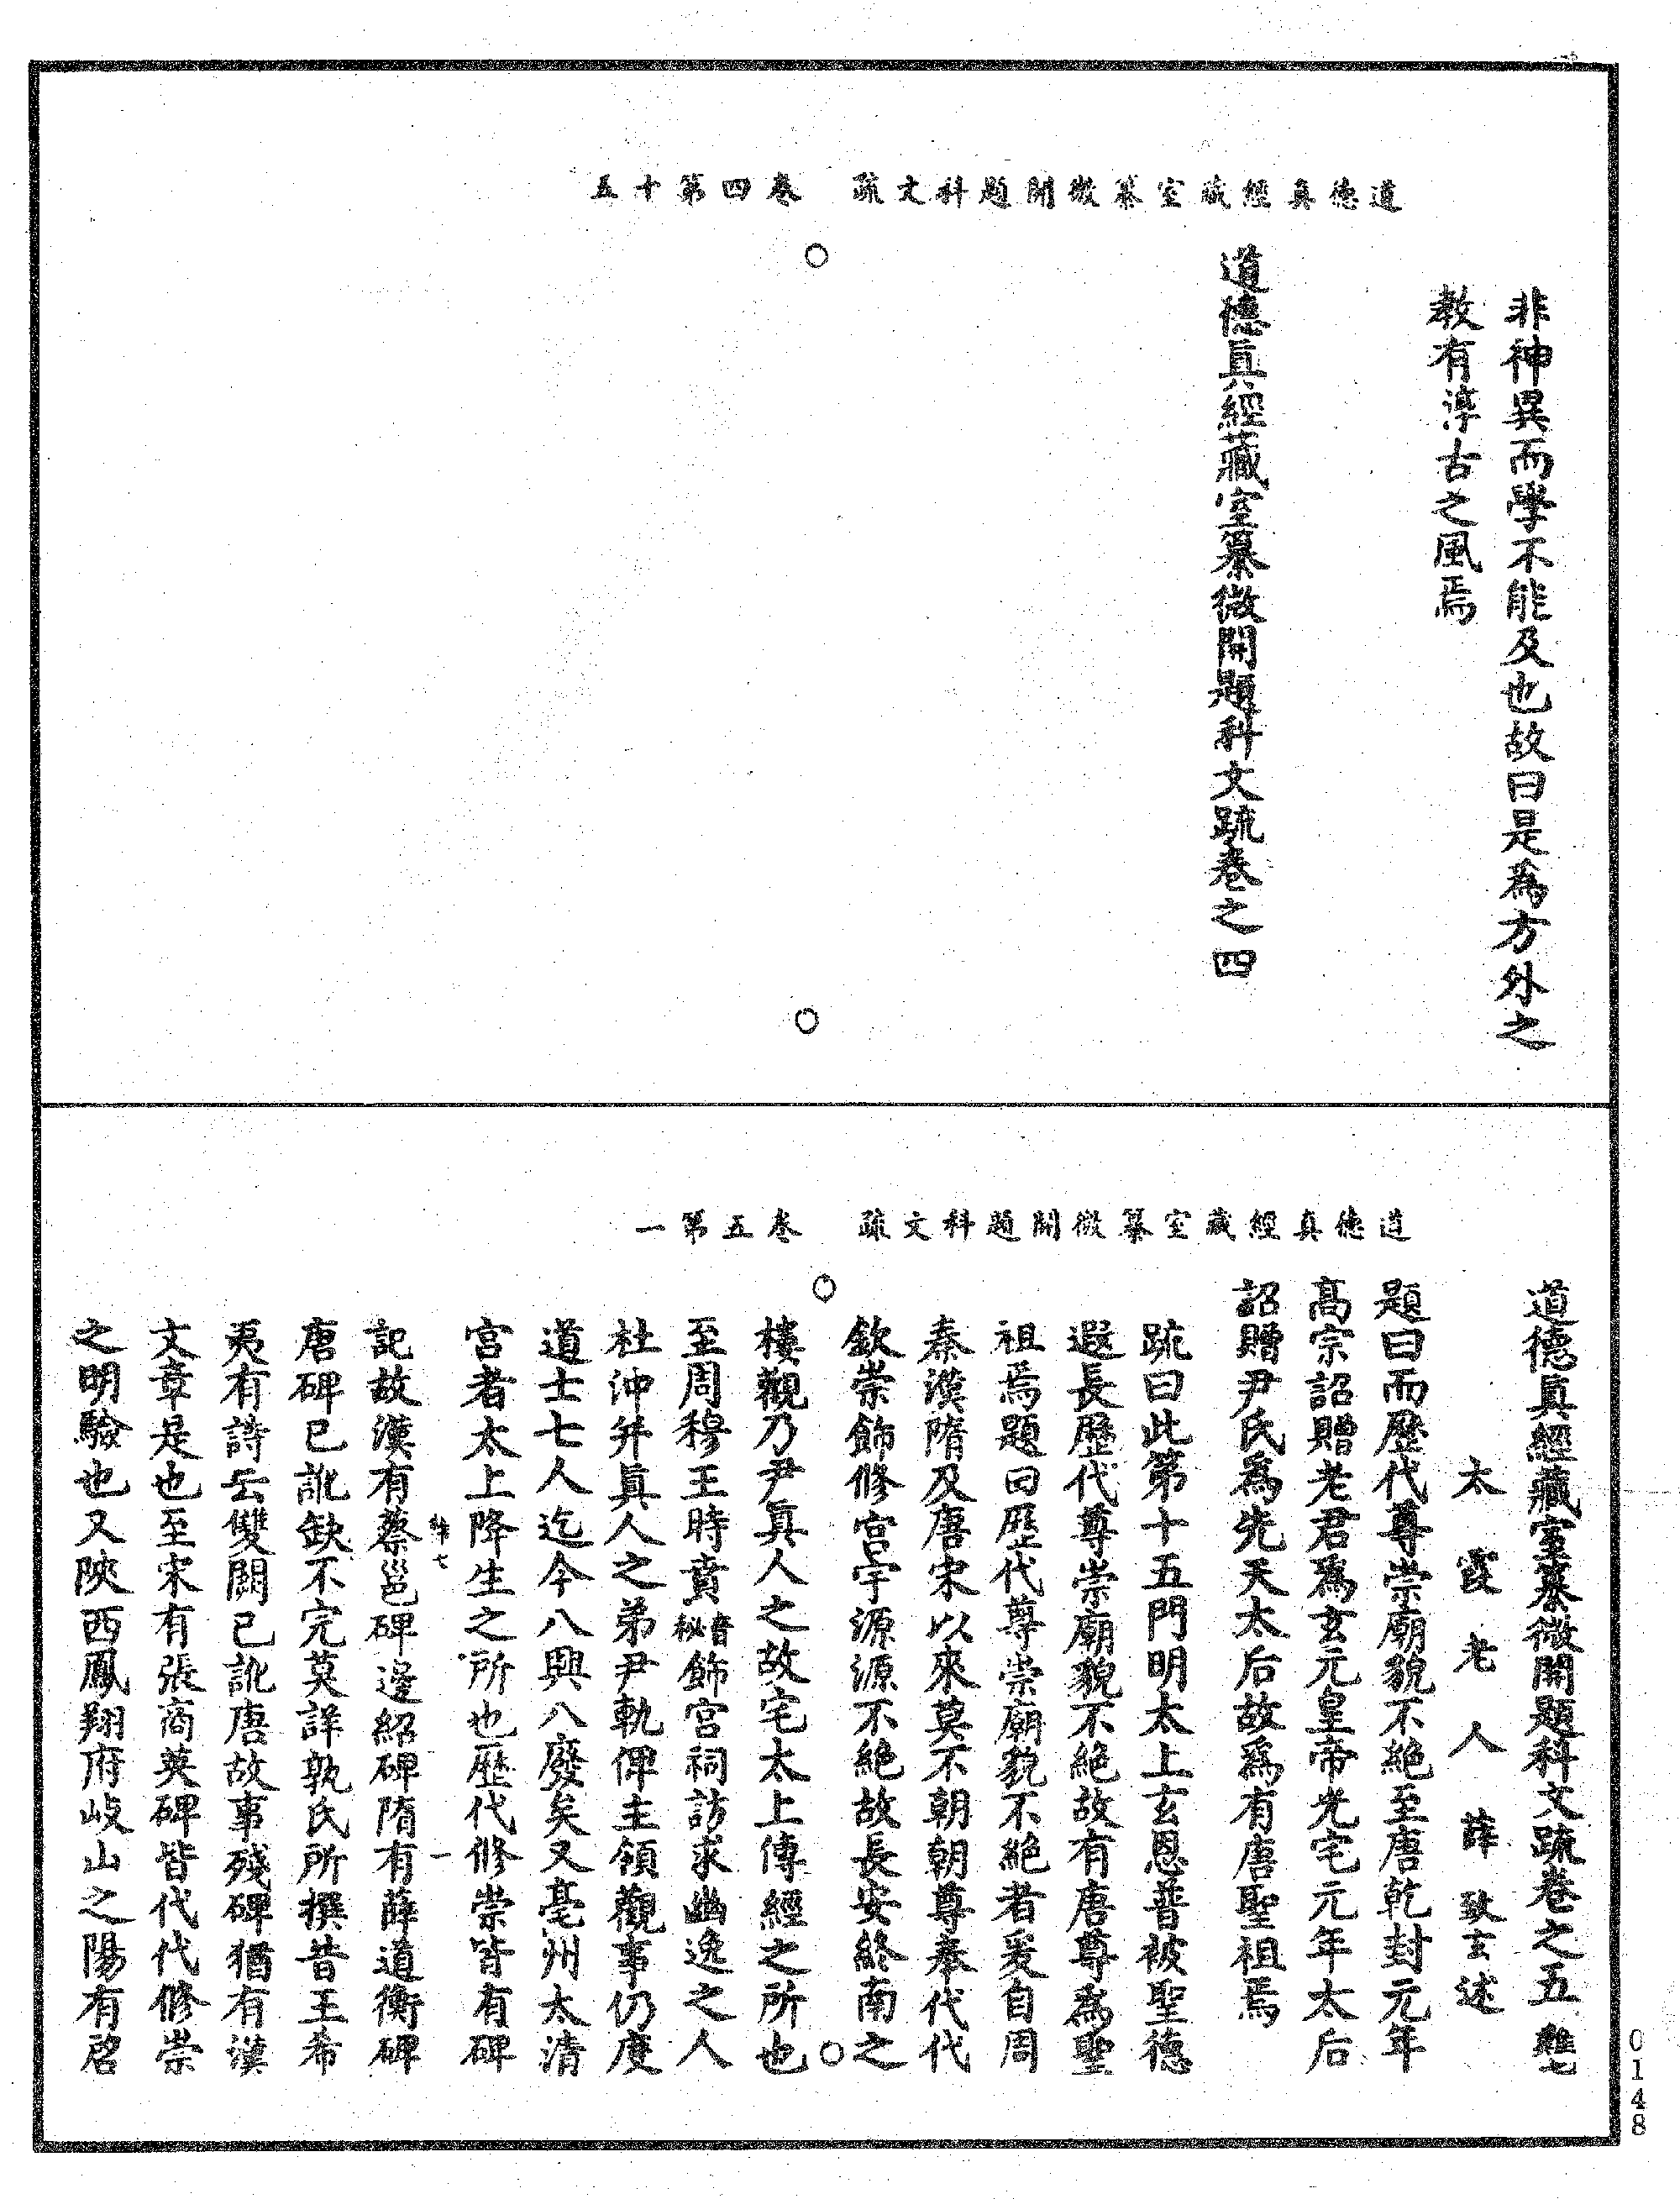 道德真經藏室纂微開題科文疏　卷四第十五
非神異而學不能及也故曰是為方外之
教有淳古之風焉
道德真經藏室纂微開題科文疏卷之四
道德真經藏室纂微開題科文疏　卷五第一
道德真經藏室纂微開題科文疏卷之五
太霞老人薛致玄述
題曰而歷代尊崇廟貌不絕至唐乾封元年
高宗詔贈老君為玄元皇帝光宅元年太后
詔贈尹氏為先天太后故為有唐聖祖焉
疏曰此第十五門明太上玄恩普被聖德
遐長歷代尊崇廟貌不絕故有唐尊為聖
祖焉題曰歷代尊崇廟貌不絕者爰自周
秦漢隋及唐宋以來莫不朝朝尊奉代代
欽崇飾修宮宇源源不絕故長安終南之
樓觀乃尹真人之故宅太上傳經之所也
至周穆王時賁音秘飾宮祠訪求幽逸之人
杜沖并真人之弟尹軌俾主領觀事仍度
道士七人迄今八興八廢矣又亳州太清
宮者太上降生之所也歷代修崇皆有碑
一
記故漢有蔡邕碑邊紹碑隋有薛道衡碑
唐碑已訛缺不完莫詳孰氏所撰昔王希
夷有詩云雙闕已訛唐故事殘碑猶有漢
文章是也至宋有張商英碑皆代代修崇
之明驗也又陝西鳳翔府岐山之陽有啓
0148